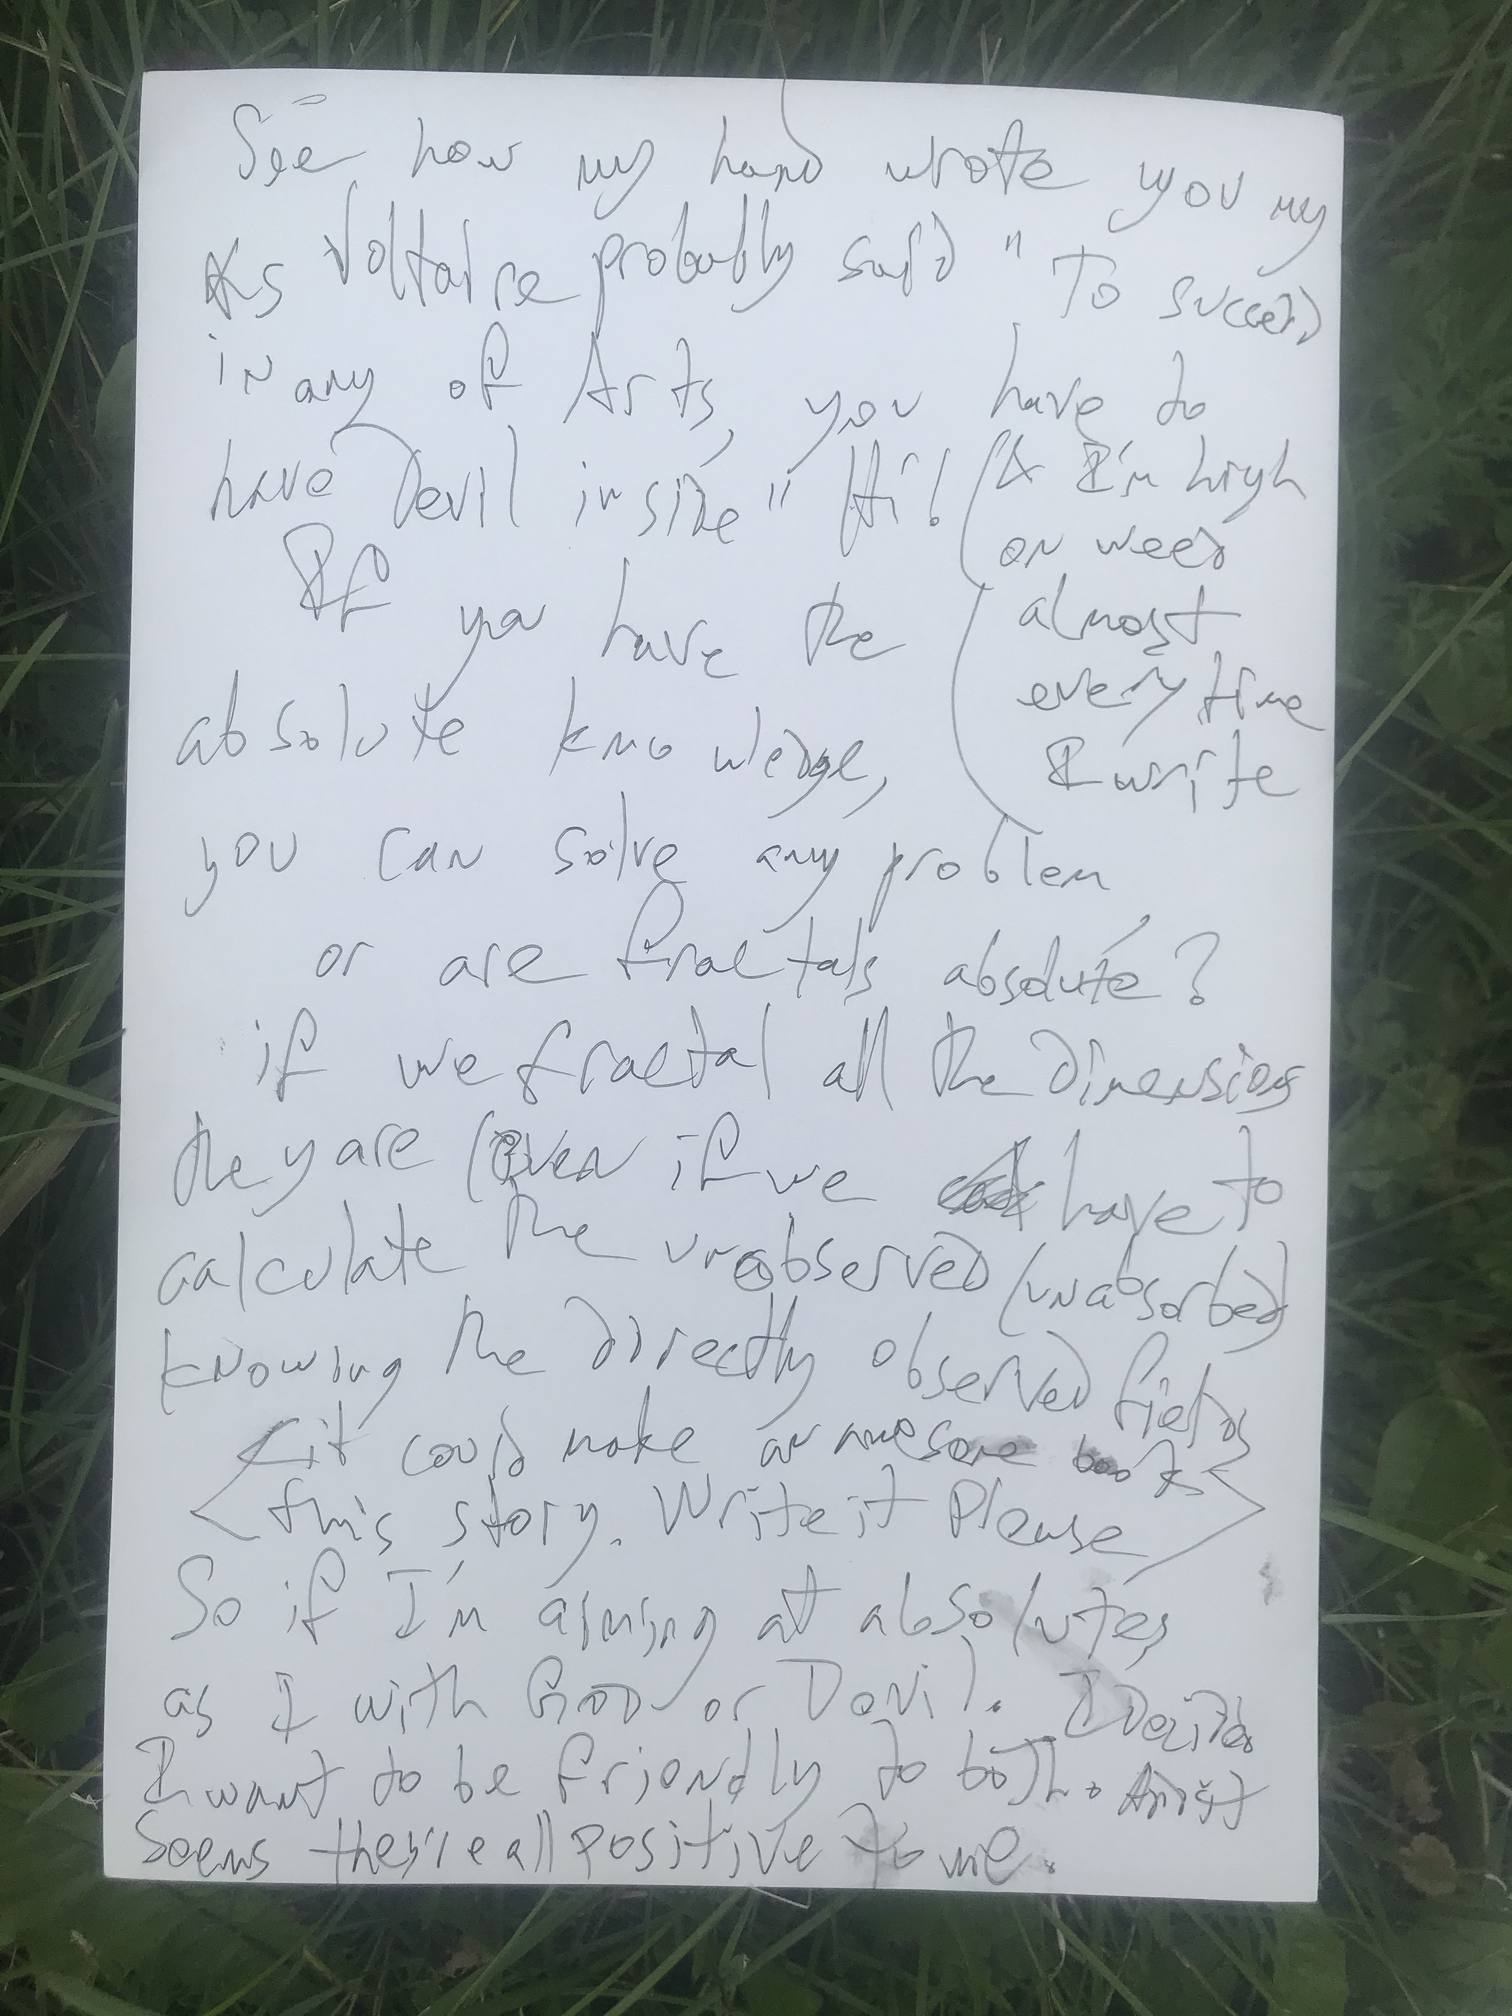 See how my hand wrote you my
As Voltaire probably said "To succeed
in any of Arts, you have to
have Devil inside" Hi!
(& I'm high
on weed
almost
every time
I write
If you have the
absolute knowledge,
you can solve any problem
or are fractals absolute?
if we fractal all the dimensions
they are (even if we have to
calculate the unobserved (unabsorbed)
knowing the directly observed fields
<it could make an awesome book
<this story. Write it Please>
So if I'm aiming at absolutes,
as I with GOD or Devil. I Decided
I want to be friendly to both. And it
seems they're all positive to me.